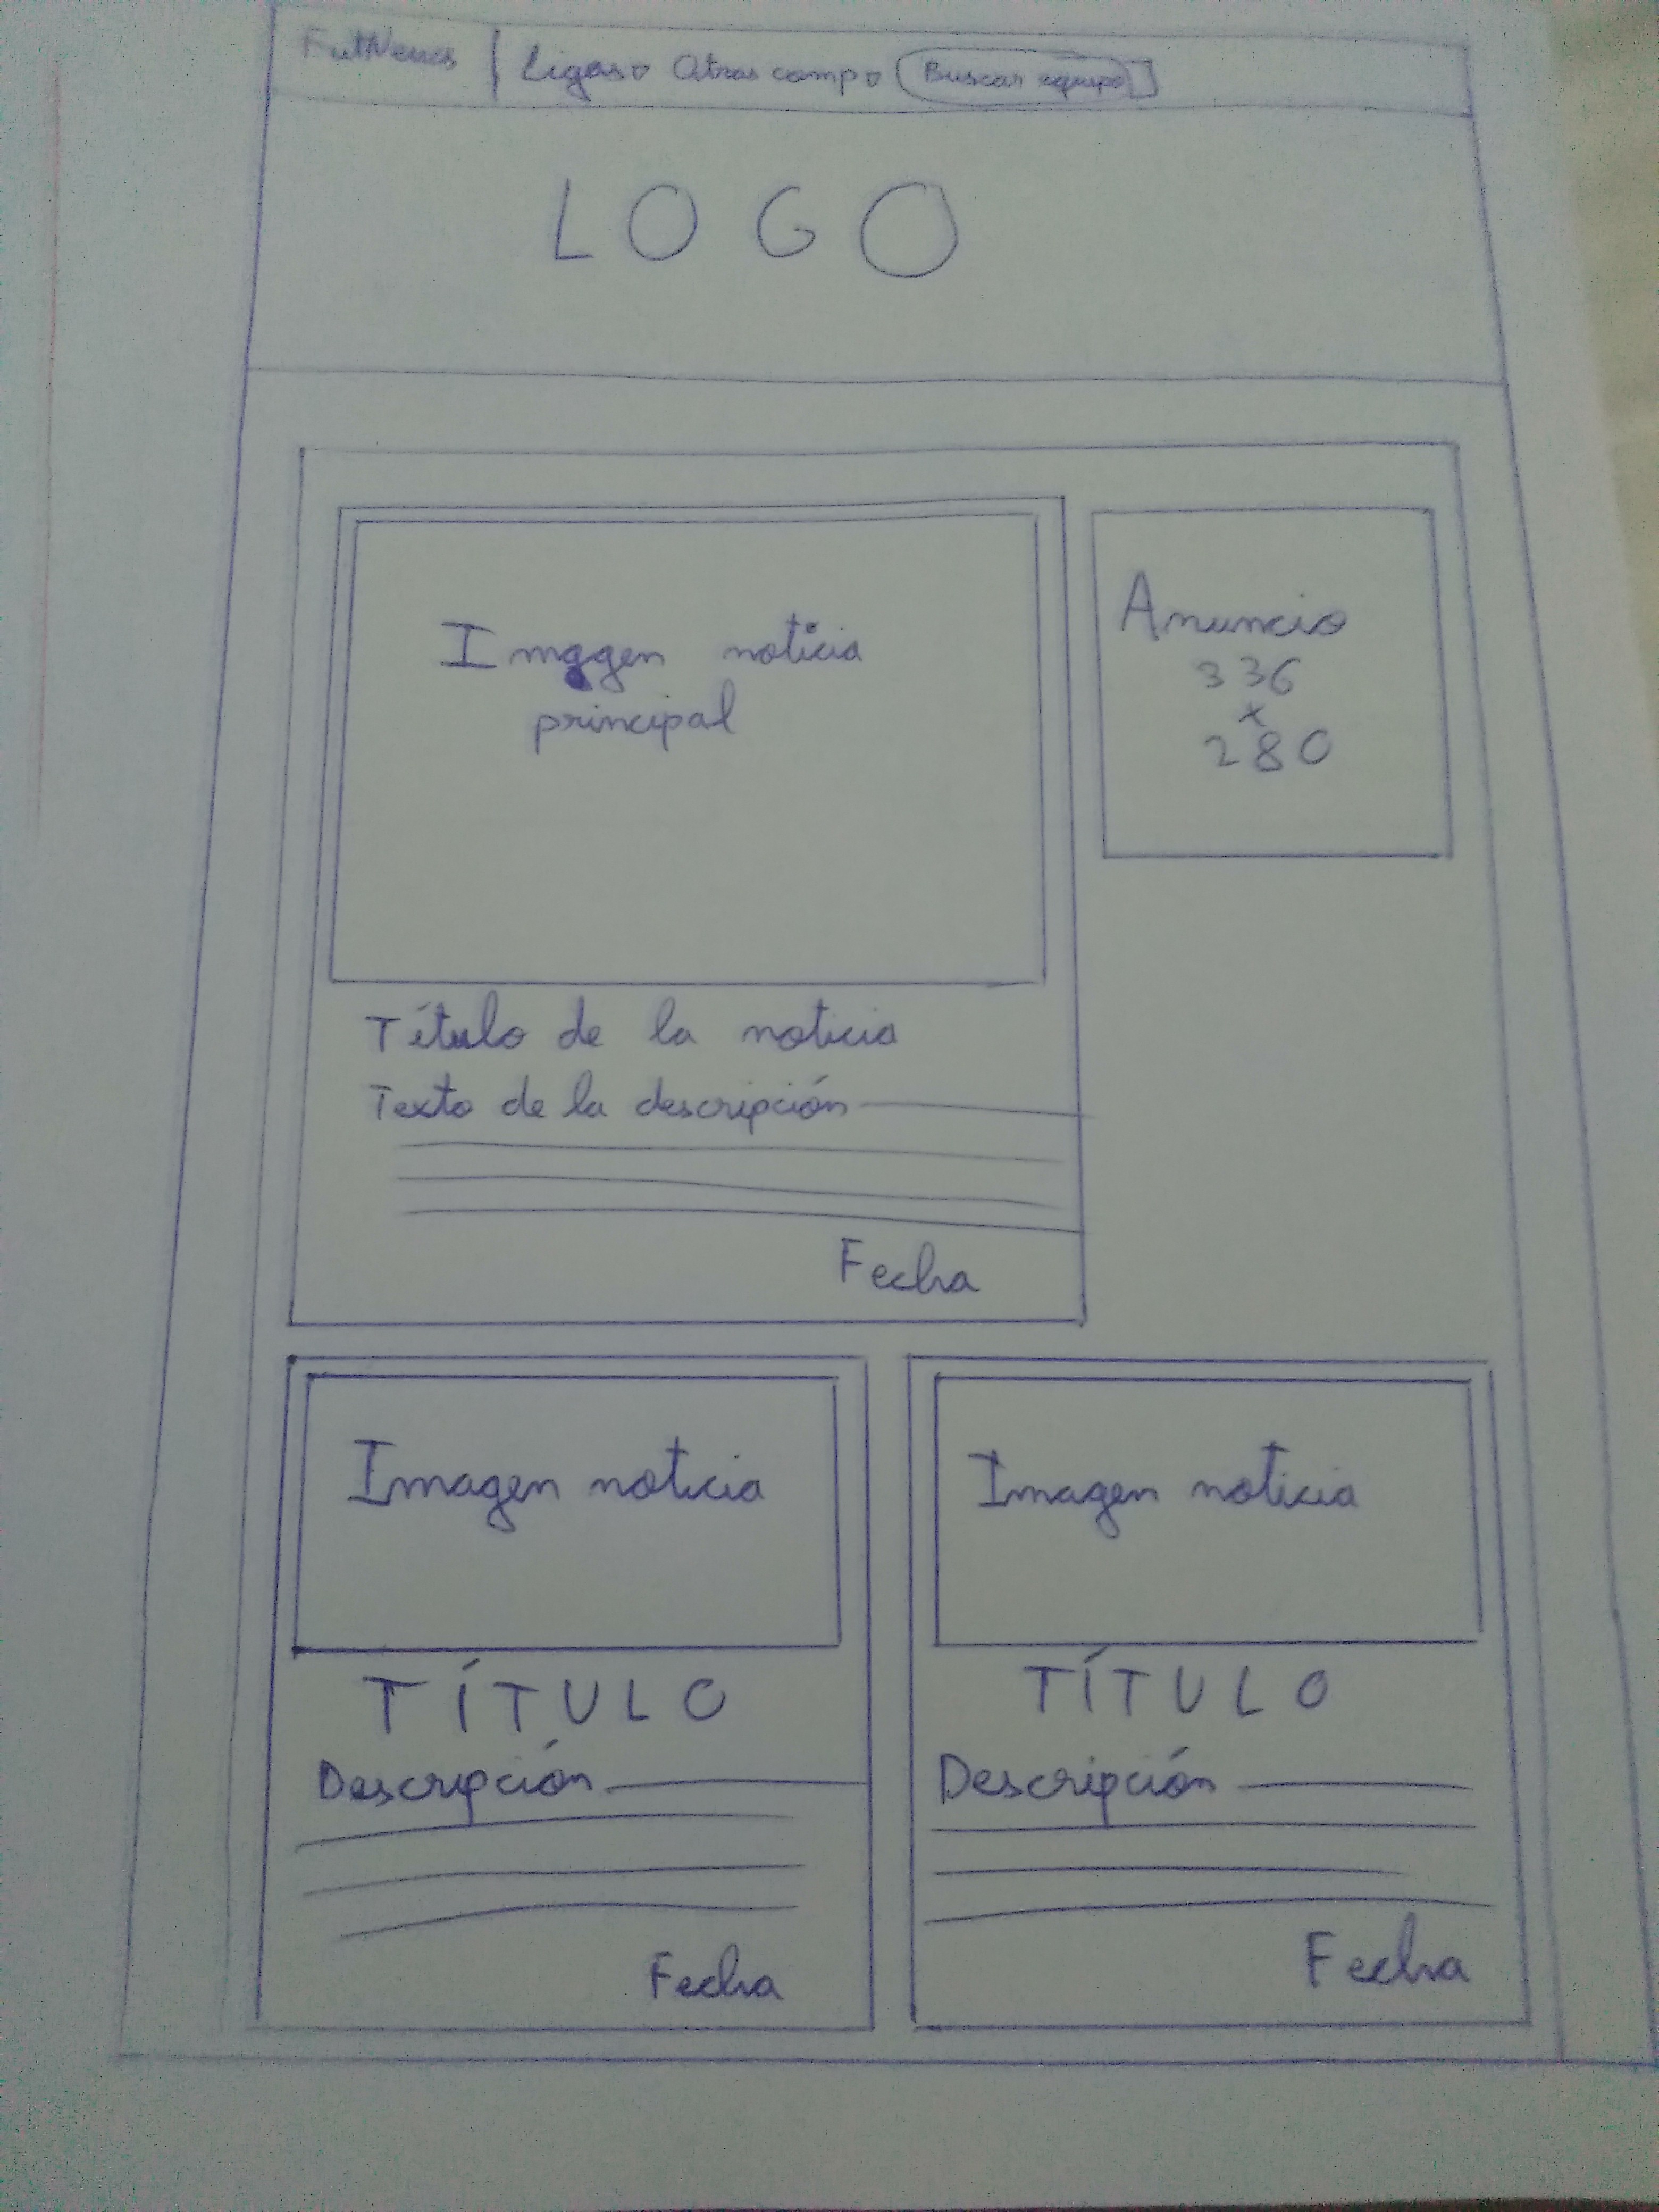 FutNews | Ligas▿ Otras comp▿ Buscar equipo
LOGO
Imagen noticia
principal
Anuncio
336
x
280
Título de la noticia
Texto de la descripción
Fecha
Imagen noticia
TÍTULO
Descripción
Fecha
Imagen noticia
TÍTULO
Descripción
Fecha